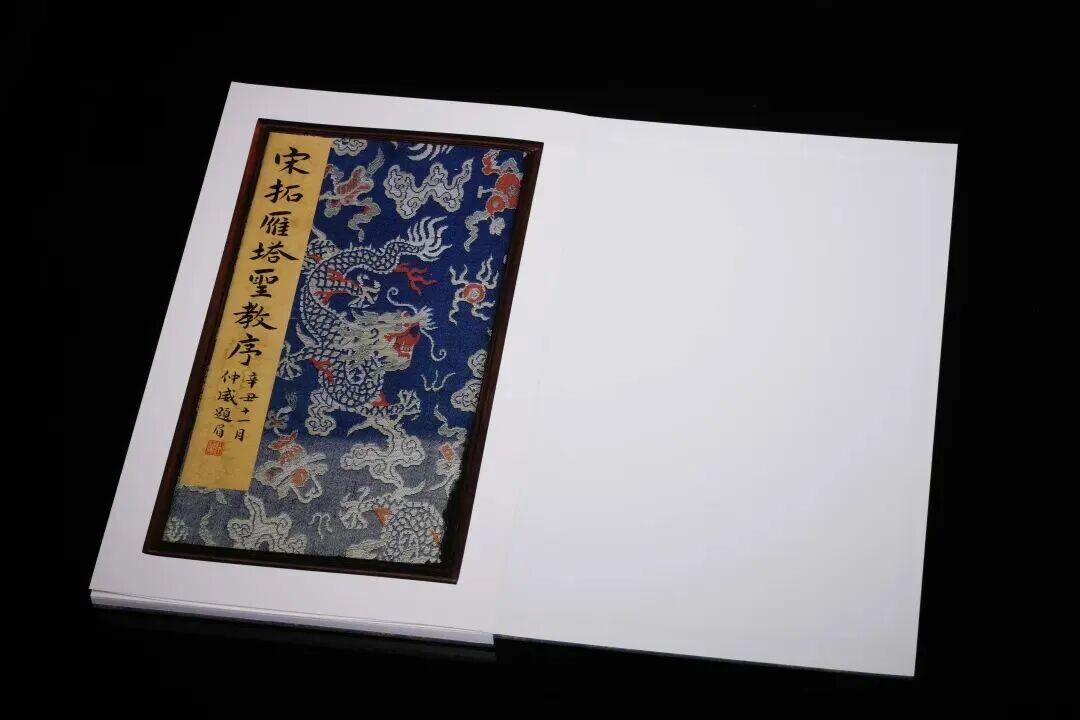 宋拓雁塔聖教序
辛丑十一月
仲威題眉